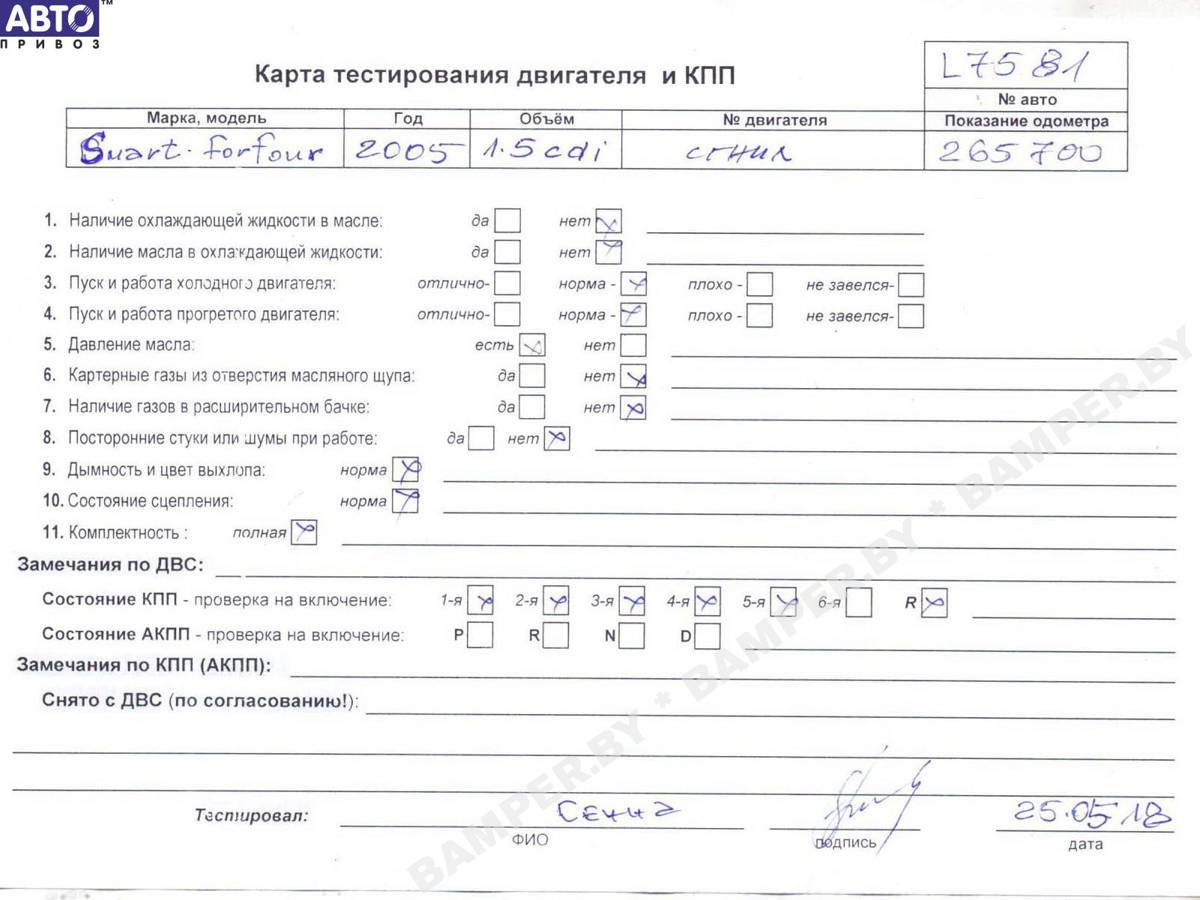 АВТО™
ПРИВОЗ
Карта тестирования двигателя и КПП
L7581
№ авто
Марка, модель Год Объём № двигателя Показание одометра
Smart. forfour 2005 1.5 cdi сгнил 265700
1. Наличие охлаждающей жидкости в масле: да нет
2. Наличие масла в охлаждающей жидкости: да нет
3. Пуск и работа холодного двигателя: отлично- норма - плохо - не завелся-
4. Пуск и работа прогретого двигателя: отлично- норма - плохо - не завелся-
5. Давление масла: есть нет
6. Картерные газы из отверстия масляного щупа: да нет
7. Наличие газов в расширительном бачке: да нет
8. Посторонние стуки или шумы при работе: да нет
9. Дымность и цвет выхлопа: норма
10. Состояние сцепления: норма
11. Комплектность : полная
Замечания по ДВС:
Состояние КПП - проверка на включение: 1-я 2-я 3-я 4-я 5-я 6-я R
Состояние АКПП - проверка на включение: P R N D
Замечания по КПП (АКПП):
Снято с ДВС (по согласованию!):
Тестировал: 25.05.18
ФИО подпись дата
BAMPER.BY * BAMPER.BY * BAMPER.BY